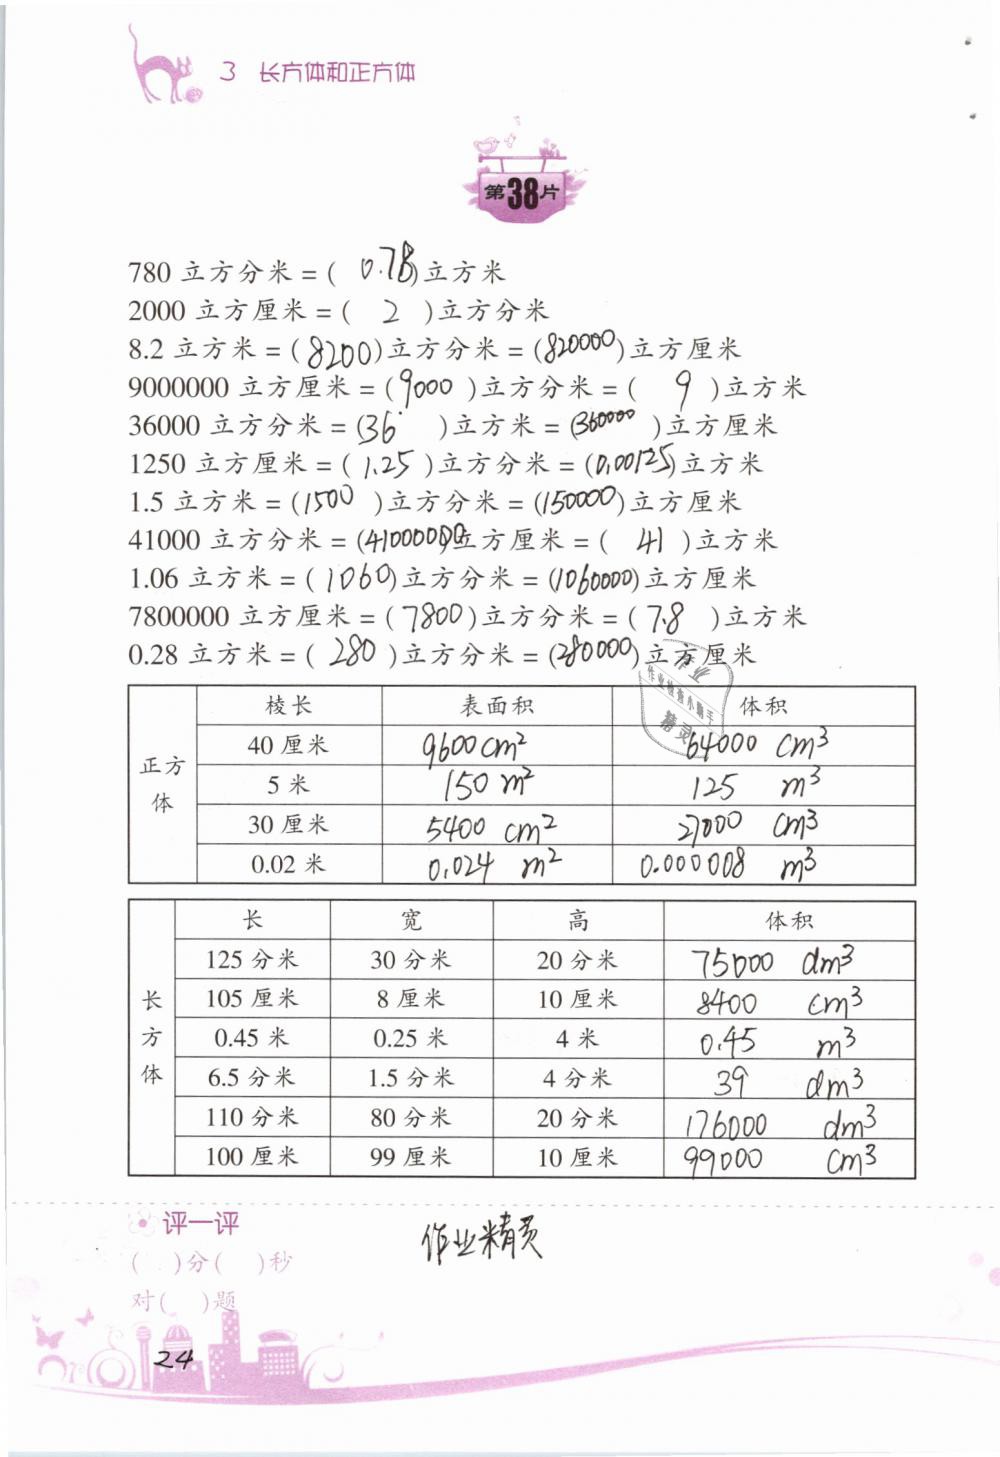 3 长方体和正方体
第38片
780 立方分米 = ( 0.78 )立方米
2000 立方厘米 = ( 2 )立方分米
8.2 立方米 = ( 8200 )立方分米 = ( 820000 )立方厘米
9000000 立方厘米 = ( 9000 )立方分米 = ( 9 )立方米
36000 立方分米 = ( 36 )立方米 = ( 360000 )立方厘米
1250 立方厘米 = ( 1.25 )立方分米 = ( 0.00125 )立方米
1.5 立方米 = ( 1500 )立方分米 = ( 150000 )立方厘米
41000 立方分米 = ( 41000000 )立方厘米 = ( 41 )立方米
1.06 立方米 = ( 1060 )立方分米 = ( 1060000 )立方厘米
7800000 立方厘米 = ( 7800 )立方分米 = ( 7.8 )立方米
0.28 立方米 = ( 280 )立方分米 = ( 280000 )立方厘米
正方体
棱长 表面积 体积
40 厘米 9600 cm² 64000 cm³
5 米 150 m² 125 m³
30 厘米 5400 cm² 27000 cm³
0.02 米 0.024 m² 0.000008 m³
长方体
长 宽 高 体积
125 分米 30 分米 20 分米 75000 dm³
105 厘米 8 厘米 10 厘米 8400 cm³
0.45 米 0.25 米 4 米 0.45 m³
6.5 分米 1.5 分米 4 分米 39 dm³
110 分米 80 分米 20 分米 176000 dm³
100 厘米 99 厘米 10 厘米 99000 cm³
作业
作业检查小助手
精灵
评一评
( )分( )秒
对( )题
作业精灵
24